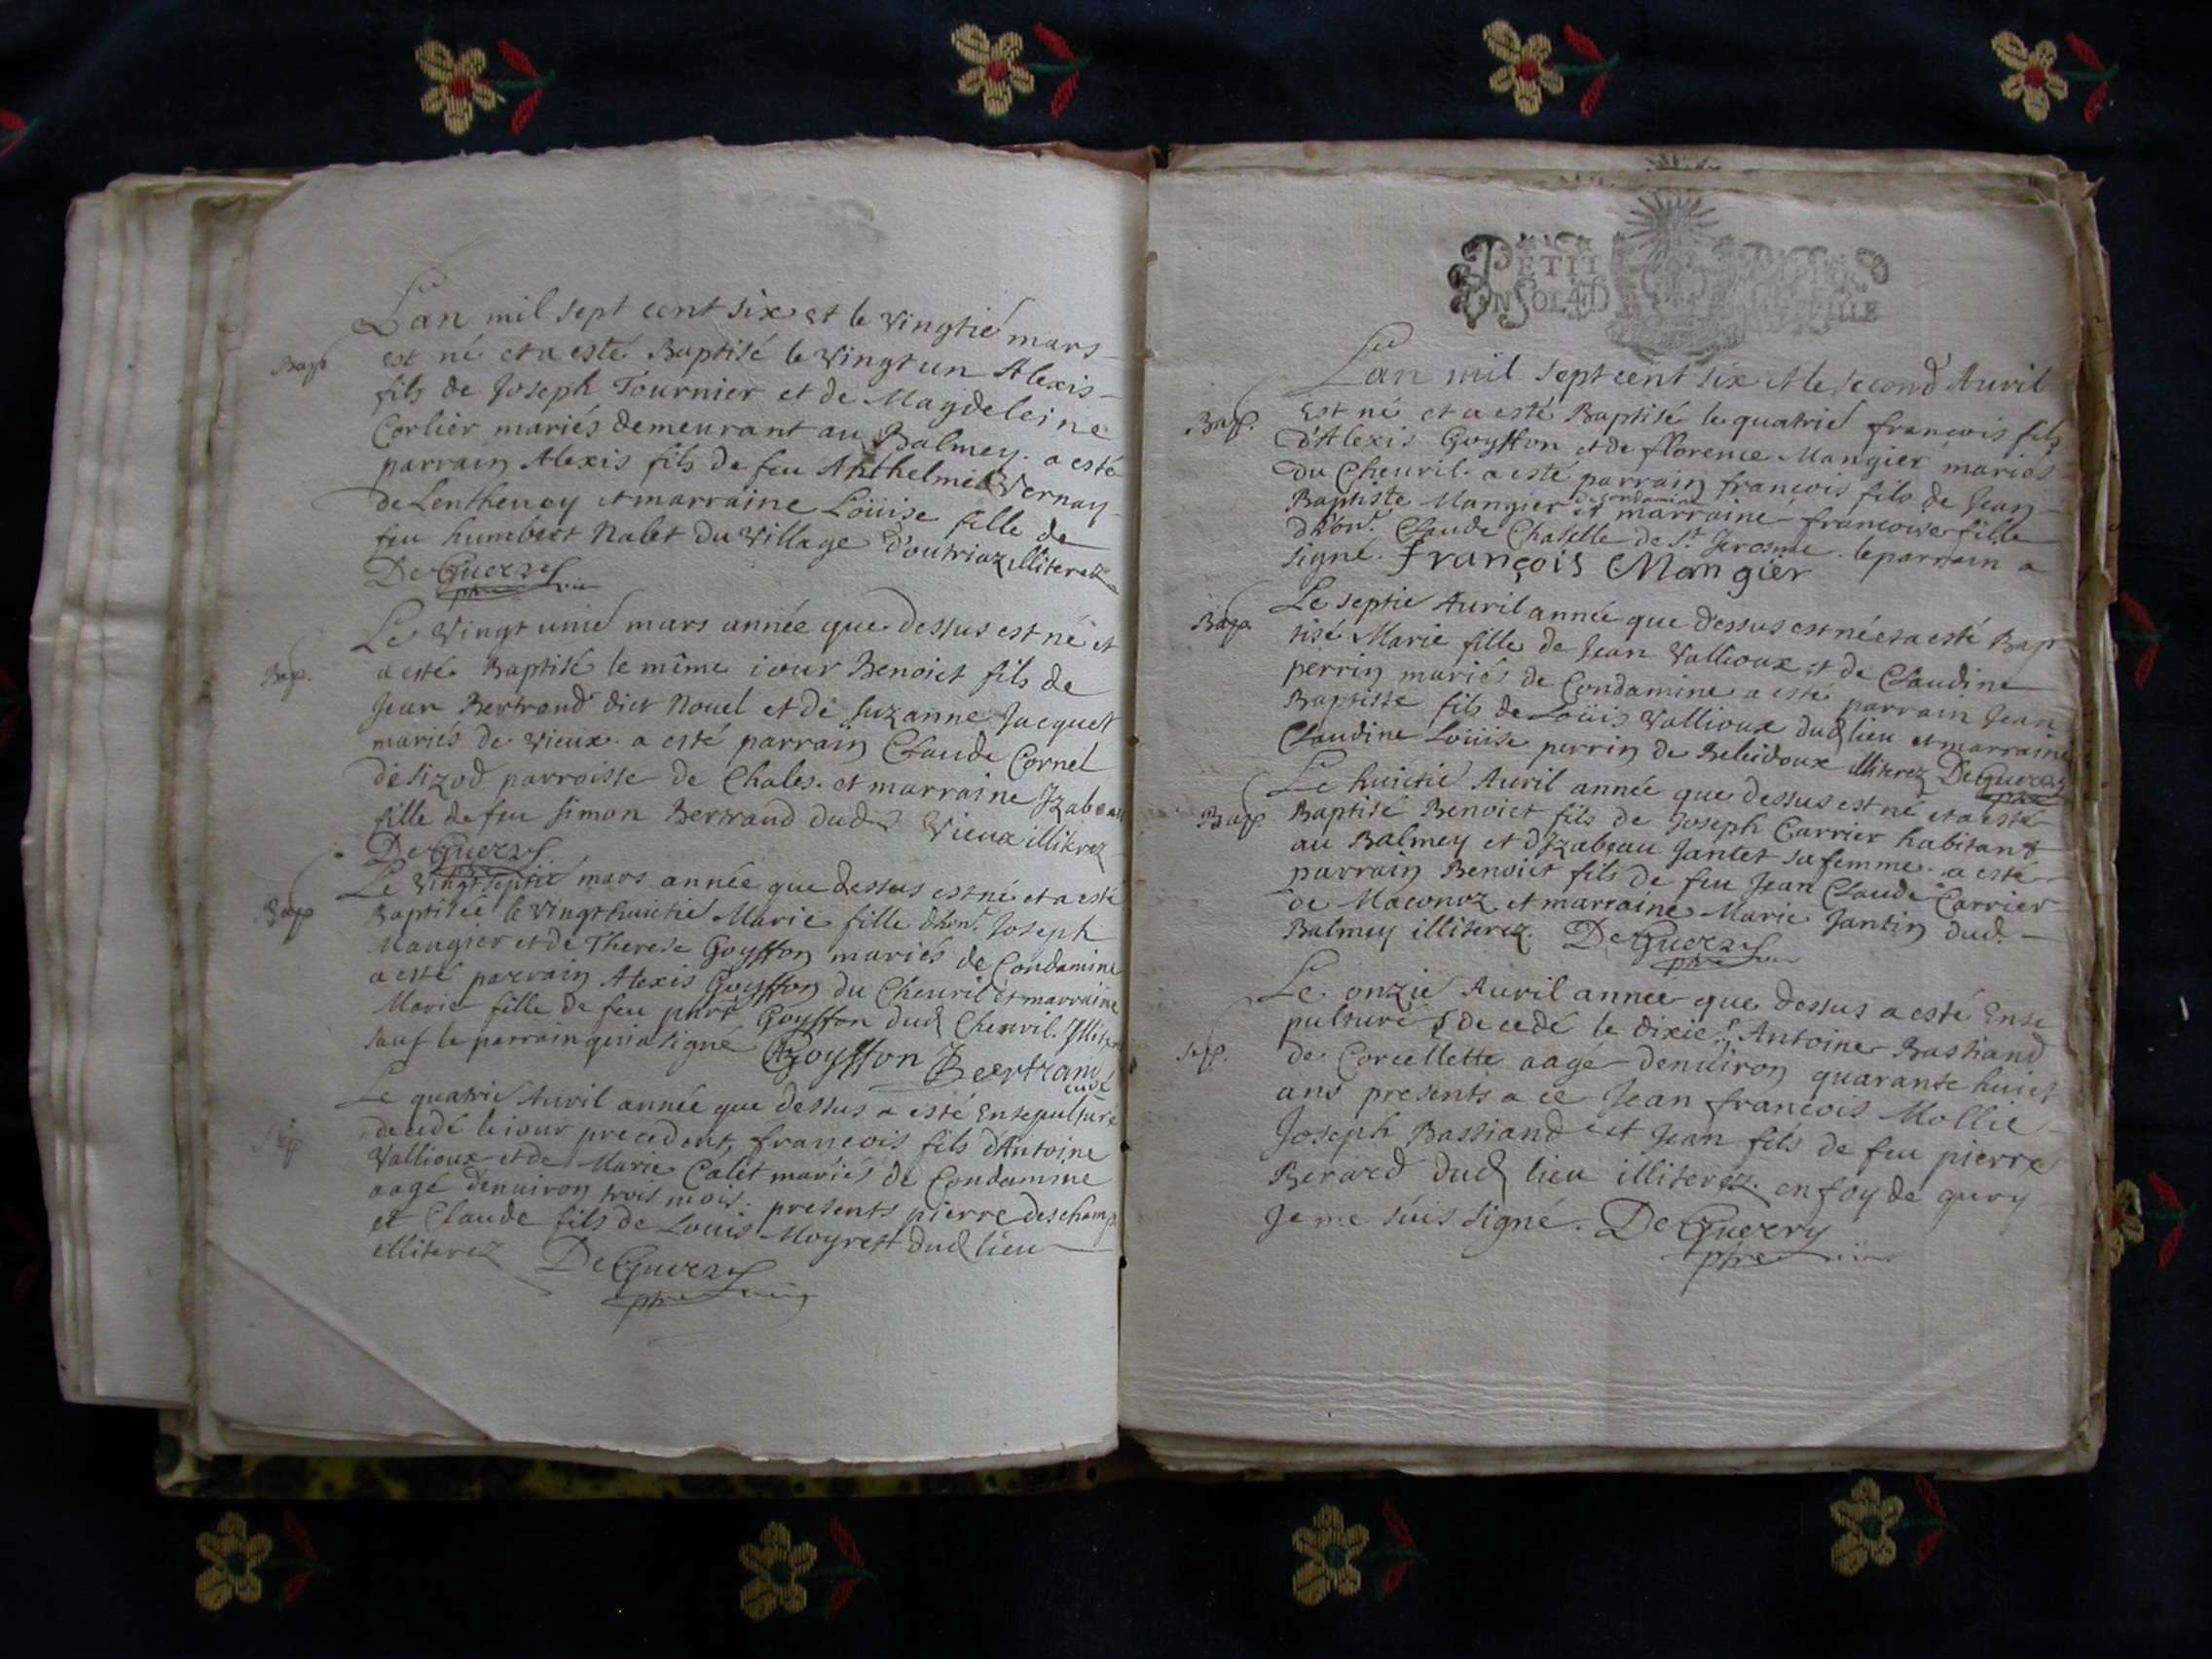 Lan mil sept cent six et le vingtie mars
Bap
est né et a esté Baptisé le vingt un Alexis
fils de Joseph Tournier et de Magdeleine
Corlier mariés demeurant au Balmey. a esté
parrain Alexis fils de feu Anthelme Vernay
de Lenthenay et marraine Loüise fille de
feu humbert Nalet du village d'outriaz illiterez
De Guerry
pbre
Le vingt unie mars année que dessus est né et
Bap.
a esté Baptisé le même iour Benoict fils de
Jean Bertrand dict Nouel et de Suzanne Jacquet
mariés de vieux. a esté parrain Claude Cornel
de sizod parroisse de Chales. et marraine Izabeau
fille de feu simon Bertrand dud vieux illiterez
De Guerry
Le vingt septie mars année que dessus est né et a esté
Bap
Baptisée le vingt huictie Marie fille dhon. Joseph
Mangier et de Therese Goyffon mariés de Condamine
a esté parrain Alexis Goyffon du Cheuril et marraine
Marie fille de feu Goyffon dud Cheuril. Illiterez
sauf le parrain qui a signé AGoyffon Bertrand
curé
Le quatrie Auril année que dessus a esté Ensepulturé
Sep
decedé le iour precedent, francois fils d'Antoine
Vallioux et de Marie Calet mariés de Condamine
aagé denuiron trois mois. presents pierre deschamp
et Claude fils de Louis Moyret dud lieu
illiterez De Guerry
pbre
PETIT
UN SOL
Lan mil sept cent six et le second Auril
Bap.
Est né et a esté Baptisé le quatrie francois fils
d'Alexis Goyffon et de florence Mangier mariés
du Cheuril. a esté parrain francois fils de Jean
Baptiste Mangier de condamine et marraine francoise fille
dhon. Claude Chapelle de St Jerosme. le parrain a
signé. françois Mangier
Le septie Auril année que dessus est née et a esté Bap
Bap
tisé Marie fille de Jean Vallioux et de Claudine
perrin mariés de Condamine a esté parrain Jean
Baptiste fils de Loüis Vallioux dud lieu et marraine
Claudine Loüise perrin de Belleidoux illiterez De Guerry
pbre
Le huictie Auril année que dessus est né et a esté
Bap.
Baptisé Benoict fils de Joseph Carrier habitant
au Balmey et d'Izabeau Jantet sa femme. a esté
parrain Benoict fils de feu Jean Claude Carrier
de Maconoz et marraine Marie Jantin dud.
Balmey illiterez. De Guerry
pbre
Le onzie Auril année que dessus a esté Ense
pulturé decedé le dixie. Antoine Bastiand
Sep.
de Corcellette aagé denuiron quarante huict
ans presents a ce Jean francois Mollie
Joseph Bastiand et Jean fils de feu pierre
Berard dud lieu illiterez. en foy de quoy
Je me suis signé. De Guerry
pbre